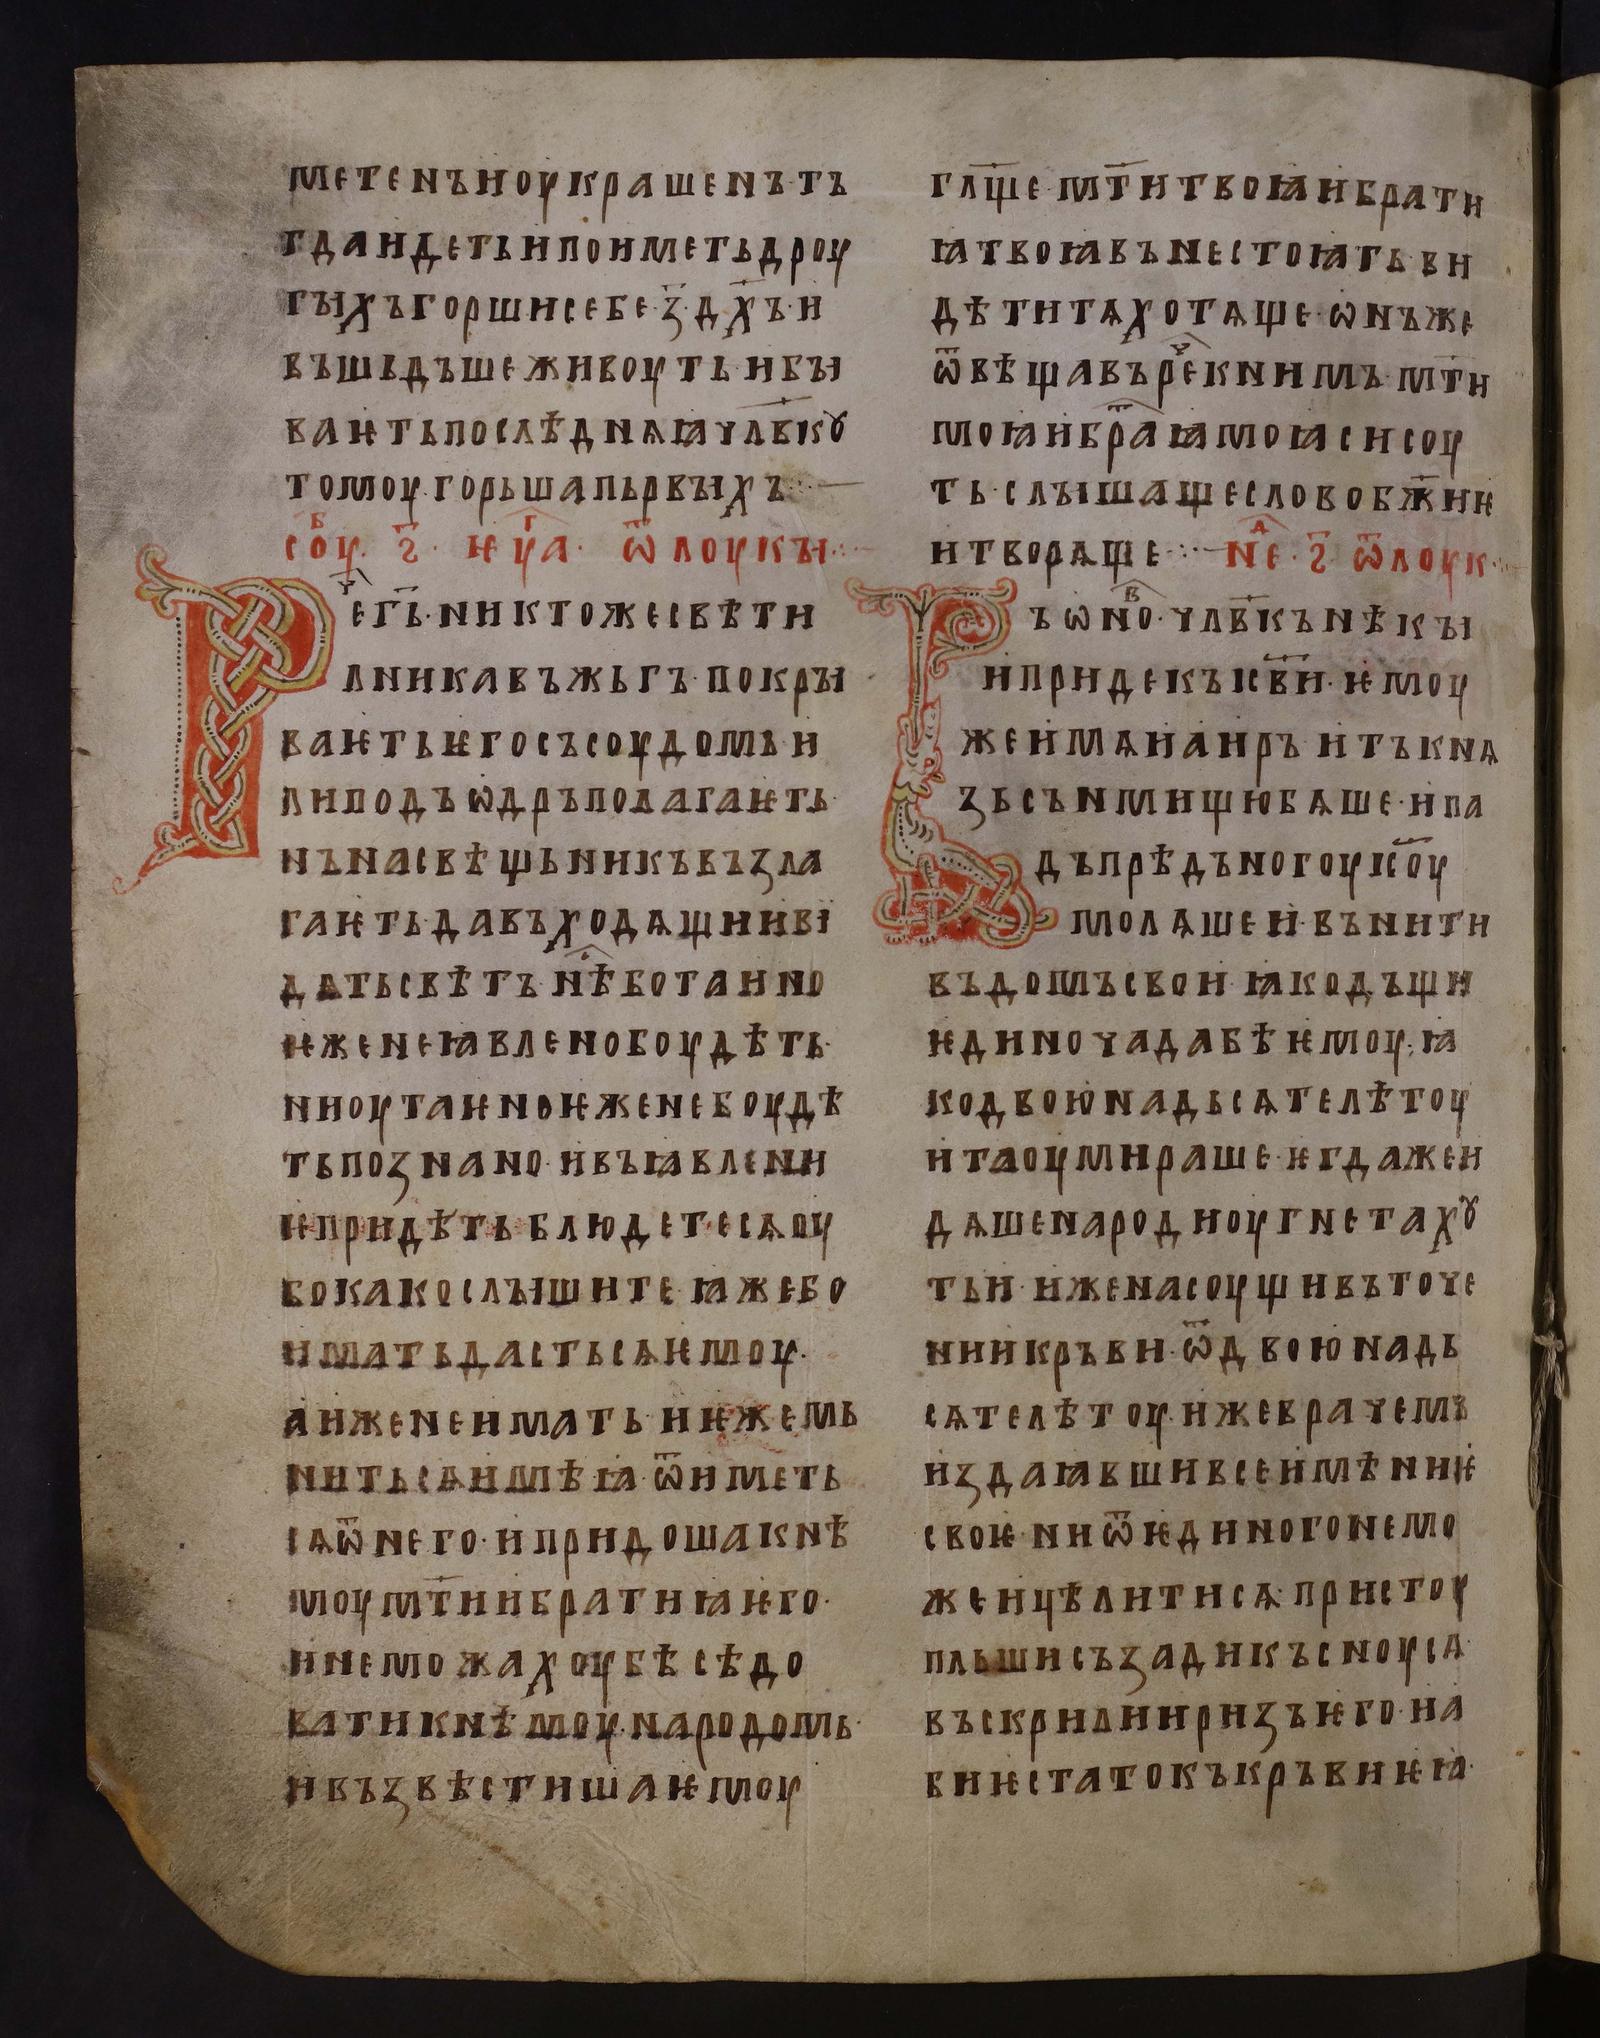 метенъ и оукрашенъ· тъ
гда идеть и поиметь дроу
гыхъ горши себе· з҃· д҃хъ· и
въшьдъше живоуть· и бы
ваѥть послѣднѧꙗ чл҃вкꙋ
томоу· горьша пьрвыхъ
соуб· ѕ҃· ѥуаⷢ҇· ѿ лоукы·
Рⷱ҇е г҃ь· никтоже свѣти
лника въжьгъ· покры
ваѥть ѥго съсоудомь· и
ли подъ ѡдръ полагаѥть·
нъ на свѣщьникъ възла
гаѥть· да въходѧщии ви
дѧть свѣтъ· нѣⷭ҇ бо таино
ѥже не ꙗвлено боудѣть·
ни оутаѥно ѥже не боудѣ
ть познано· и въ ꙗвлени
ѥ придѣть· блюдетесѧ оу
бо како слышите· ꙗже бо
имать дастьсѧ ѥмоу·
а иже не имать· и ѥже мь
нитьсѧ имѣꙗ· ѿиметь
сѧ ѿ него· и придоша к нѣ
моу мт҃и и братиꙗ ѥго·
и не можахоу бѣсѣдо
вати к нѣмоу· народомь·
и възвѣстиша ѥмоу
гл҃ще· мт҃и твоꙗ и брати
ꙗ твоꙗ вънѣ стоꙗть· ви
дѣти тѧ хотѧще· ѡнъ же
ѿвѣщавъ рⷱ҇е к нимъ· мт҃и
моꙗ и браⷮ҇ꙗ моꙗ си соу
ть· слышаще слово бж҃иѥ
и творѧще· неⷣ҇· ѕ҃· ѿ лоук·
Въ ѡноⷡ҇· чл҃вкъ нѣкы
и приде къ іс҃ви· ѥмоу
же имѧ иаиръ· и тъ кнѧ
зь сънмищю бѧше· и па
дъ прѣдъ ногоу іс҃оу
молѧше и· вънити
въ домъ свои· ꙗко дъщи
ѥдиночада бѣ ѥмоу· ꙗ
ко двою надьсѧте лѣтоу
и та оумираше· ѥгда же и
дѧше народи оугнетахꙋ
ть и· и жена соущи въ точе
нии кръви· ѿ двою надь
сѧте лѣтоу· иже врачемъ
издаꙗвши все имѣниѥ
своѥ· ни ѿ ѥдиного не мо
же ицѣлитисѧ· пристоу
пльши съзади косноусѧ
въскрилии ризъ ѥго· и а
биѥ ста токъ кръви ѥꙗ·